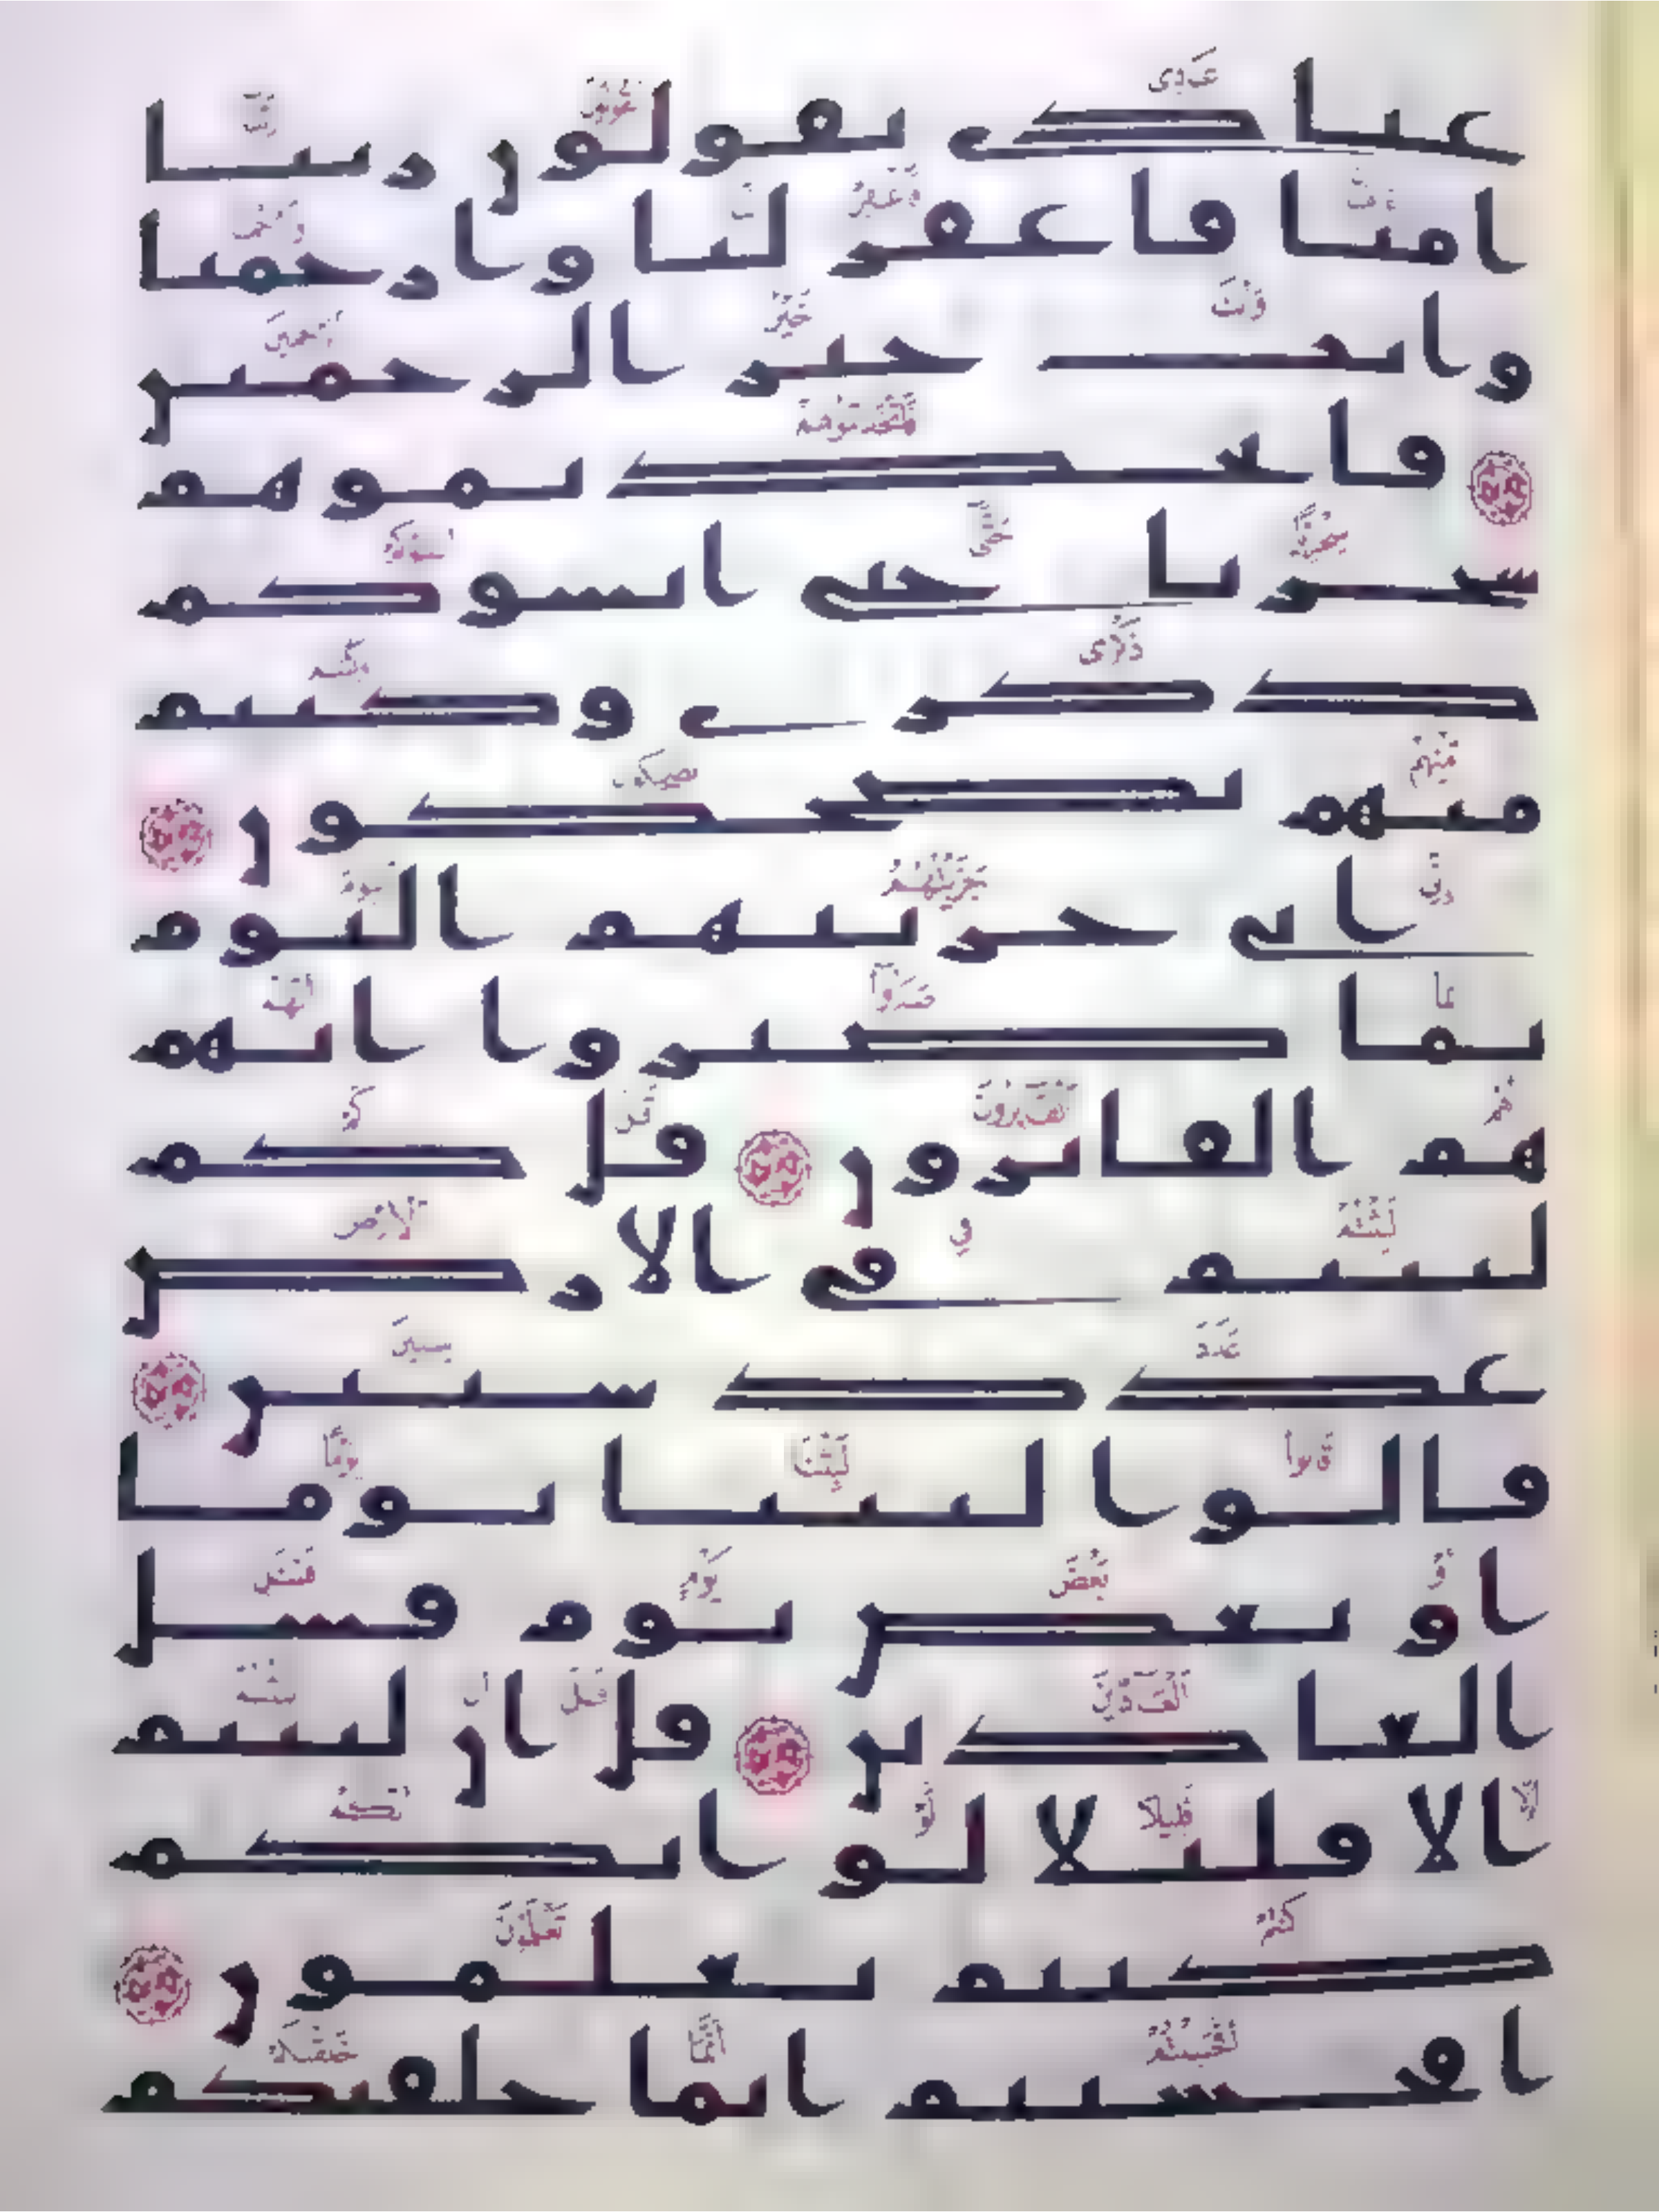 عبادي يقولون ربنا
امنا فاغفر لنا وارحمنا
وانت خير الرحمين
فاتخذتموهم
سخريا حتى انسوكم
ذكري وكنتم
منهم تضحكون
اني جزيتهم اليوم
بما صبروا انهم
هم الفايزون قل كم
لبثتم في الارض
عدد سنين
قالوا لبثنا يوما
او بعض يوم فسل
العادين قل ان لبثتم
الا قليلا لو انكم
كنتم تعلمون
افحسبتم انما خلقنكم